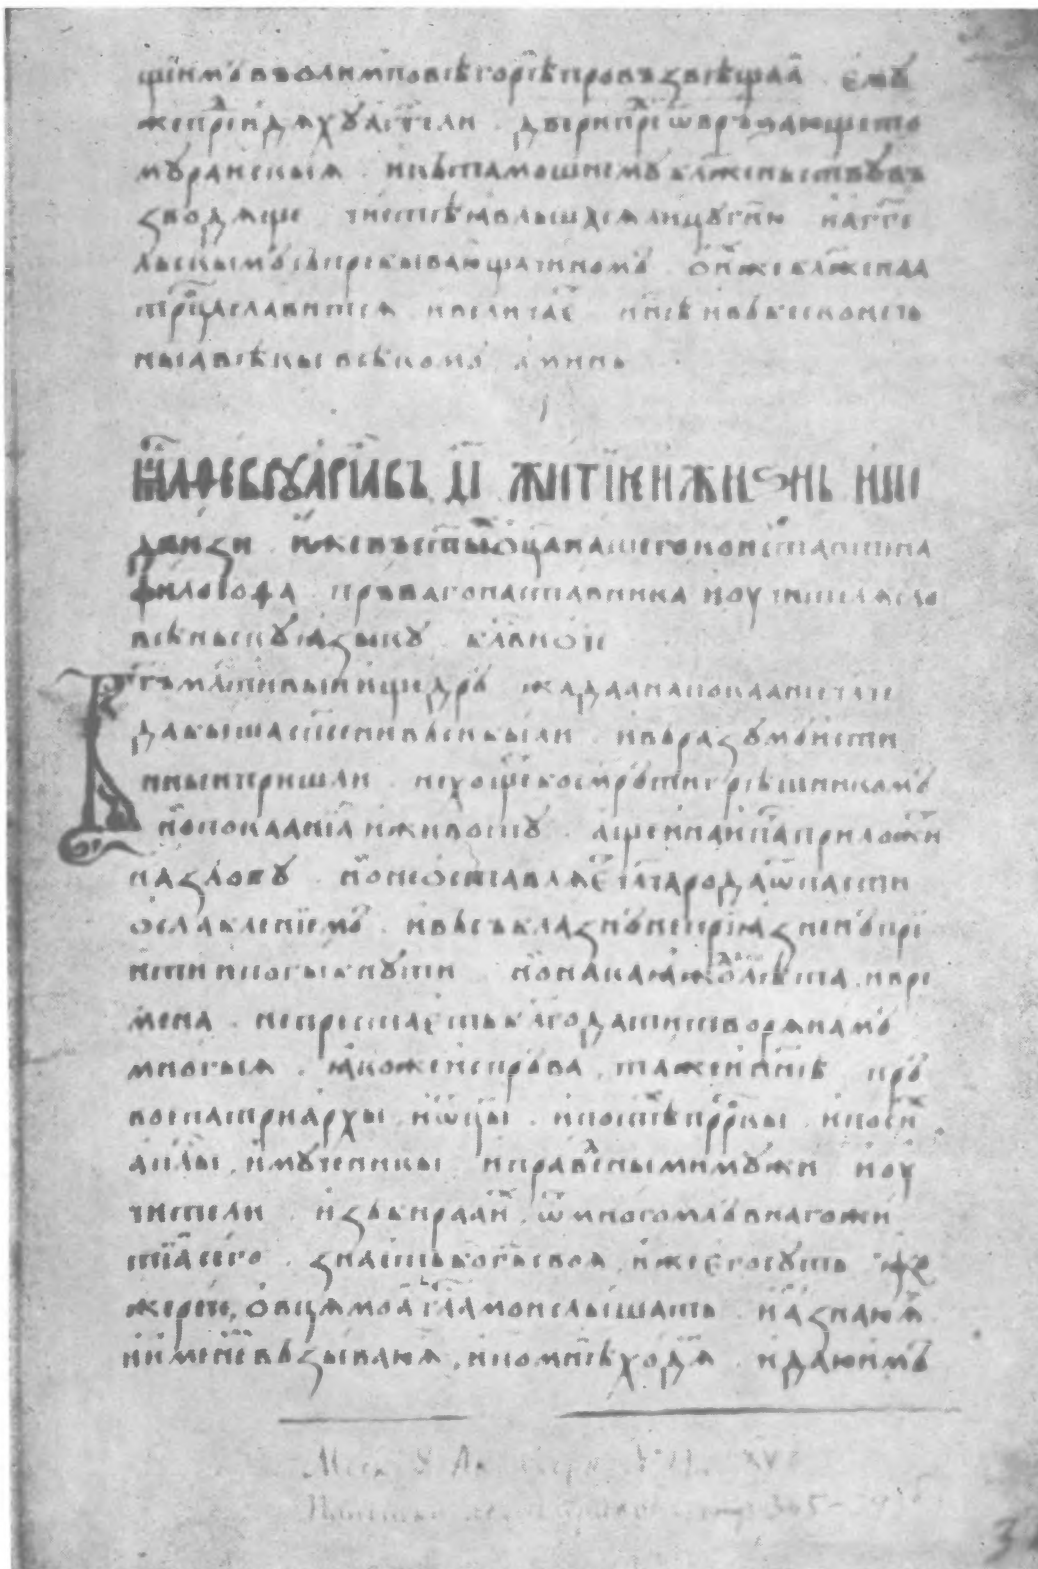 щїимъ въ олимповѣ горѣ провъзвѣщаа емꙋ
же прїидꙋхꙋ аг҃гели двери прѣѡбрѣ
мꙋ раискыѧ и къ тамошнемꙋ блаженьствꙋ въ
зводѧще
пребываюша чиномъ ѡ нихже блаженнаа
трⷪ҇ца славитсѧ и величаеⷮ нынѣ и въ бесконечь
ныа вѣкы вѣкомъ аминь
мⷭ҇ца феврꙋарїа въ д҃і житїе и жизнь и по
двиѕи иже въ ст҃ыⷯ ѡц҃а нашего констаньтина
философа пръваго наставника и оучителѧ сло
вѣньскꙋ ѧзыкꙋ бл҃ви ѡ҃че
Бг҃ъ млⷭ҇тивыи и щедръ жадаа на покаанїе чл҃че
да быша сп҃сени вьси были и въ разꙋмъ исти
нныи пришли не хощеть бо съмръти грѣшникомъ
но покаанїа и животꙋ аще и наипаче прилежи
на злобꙋ но не ѡставлѧеⷮ чл҃ча рода ѿпасти
ѡслаблениемъ и въ съблазнъ непрїазненъ прї
ити и погыбнꙋти но на каꙗждо лѣта и врѣ
мена не престаеть благодати творѧ намъ
многыѧ ꙗкоже испръва такоже и нн҃ѣ пръ
вое патриархы и ѡц҃ы и по тѣⷯ прⷪ҇ркы и по сиⷯ
ап҃лы и мꙋченикы и праведными мꙋжи и оу
чители избираа иⷯ ѿ многомлъвнаго жи
тїа сего знаеть бо г҃ь своѧ иже его сꙋть ꙗко
же рече овцѧ моѧ гласа моего слышать и аз знаю ѧ
и именемь възываю ѧ и по мнѣ ходѧⷮ и даю имъ